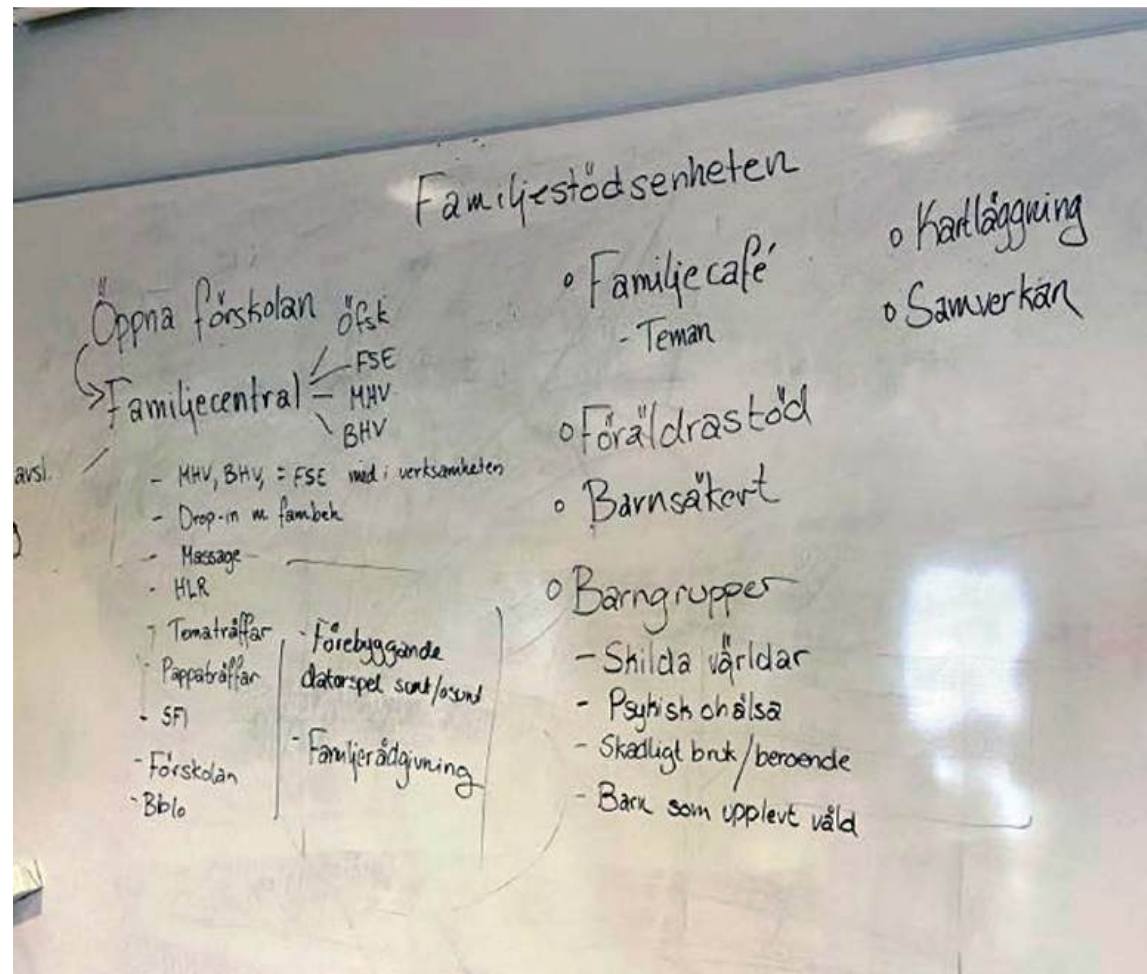 Familjestödsenheten
Öppna förskolan
Familjecentral
Öfsk
FSE
MHV
BHV
avsl.
- MHV, BHV, = FSE med i verksamheten
- Drop-in m fambeh
- Massage
- HLR
- Tematräffar
- Pappaträffar
- SFI
- Förskolan
- Biblo
- Förebyggande
datorspel sunt/osunt
- Familjerådgivning
o Familjecafé
- Teman
o Föräldrastöd
o Barnsäkert
o Barngrupper
- Skilda världar
- Psykisk ohälsa
- Skadligt bruk/beroende
- Barn som upplevt våld
o Kartläggning
o Samverkan